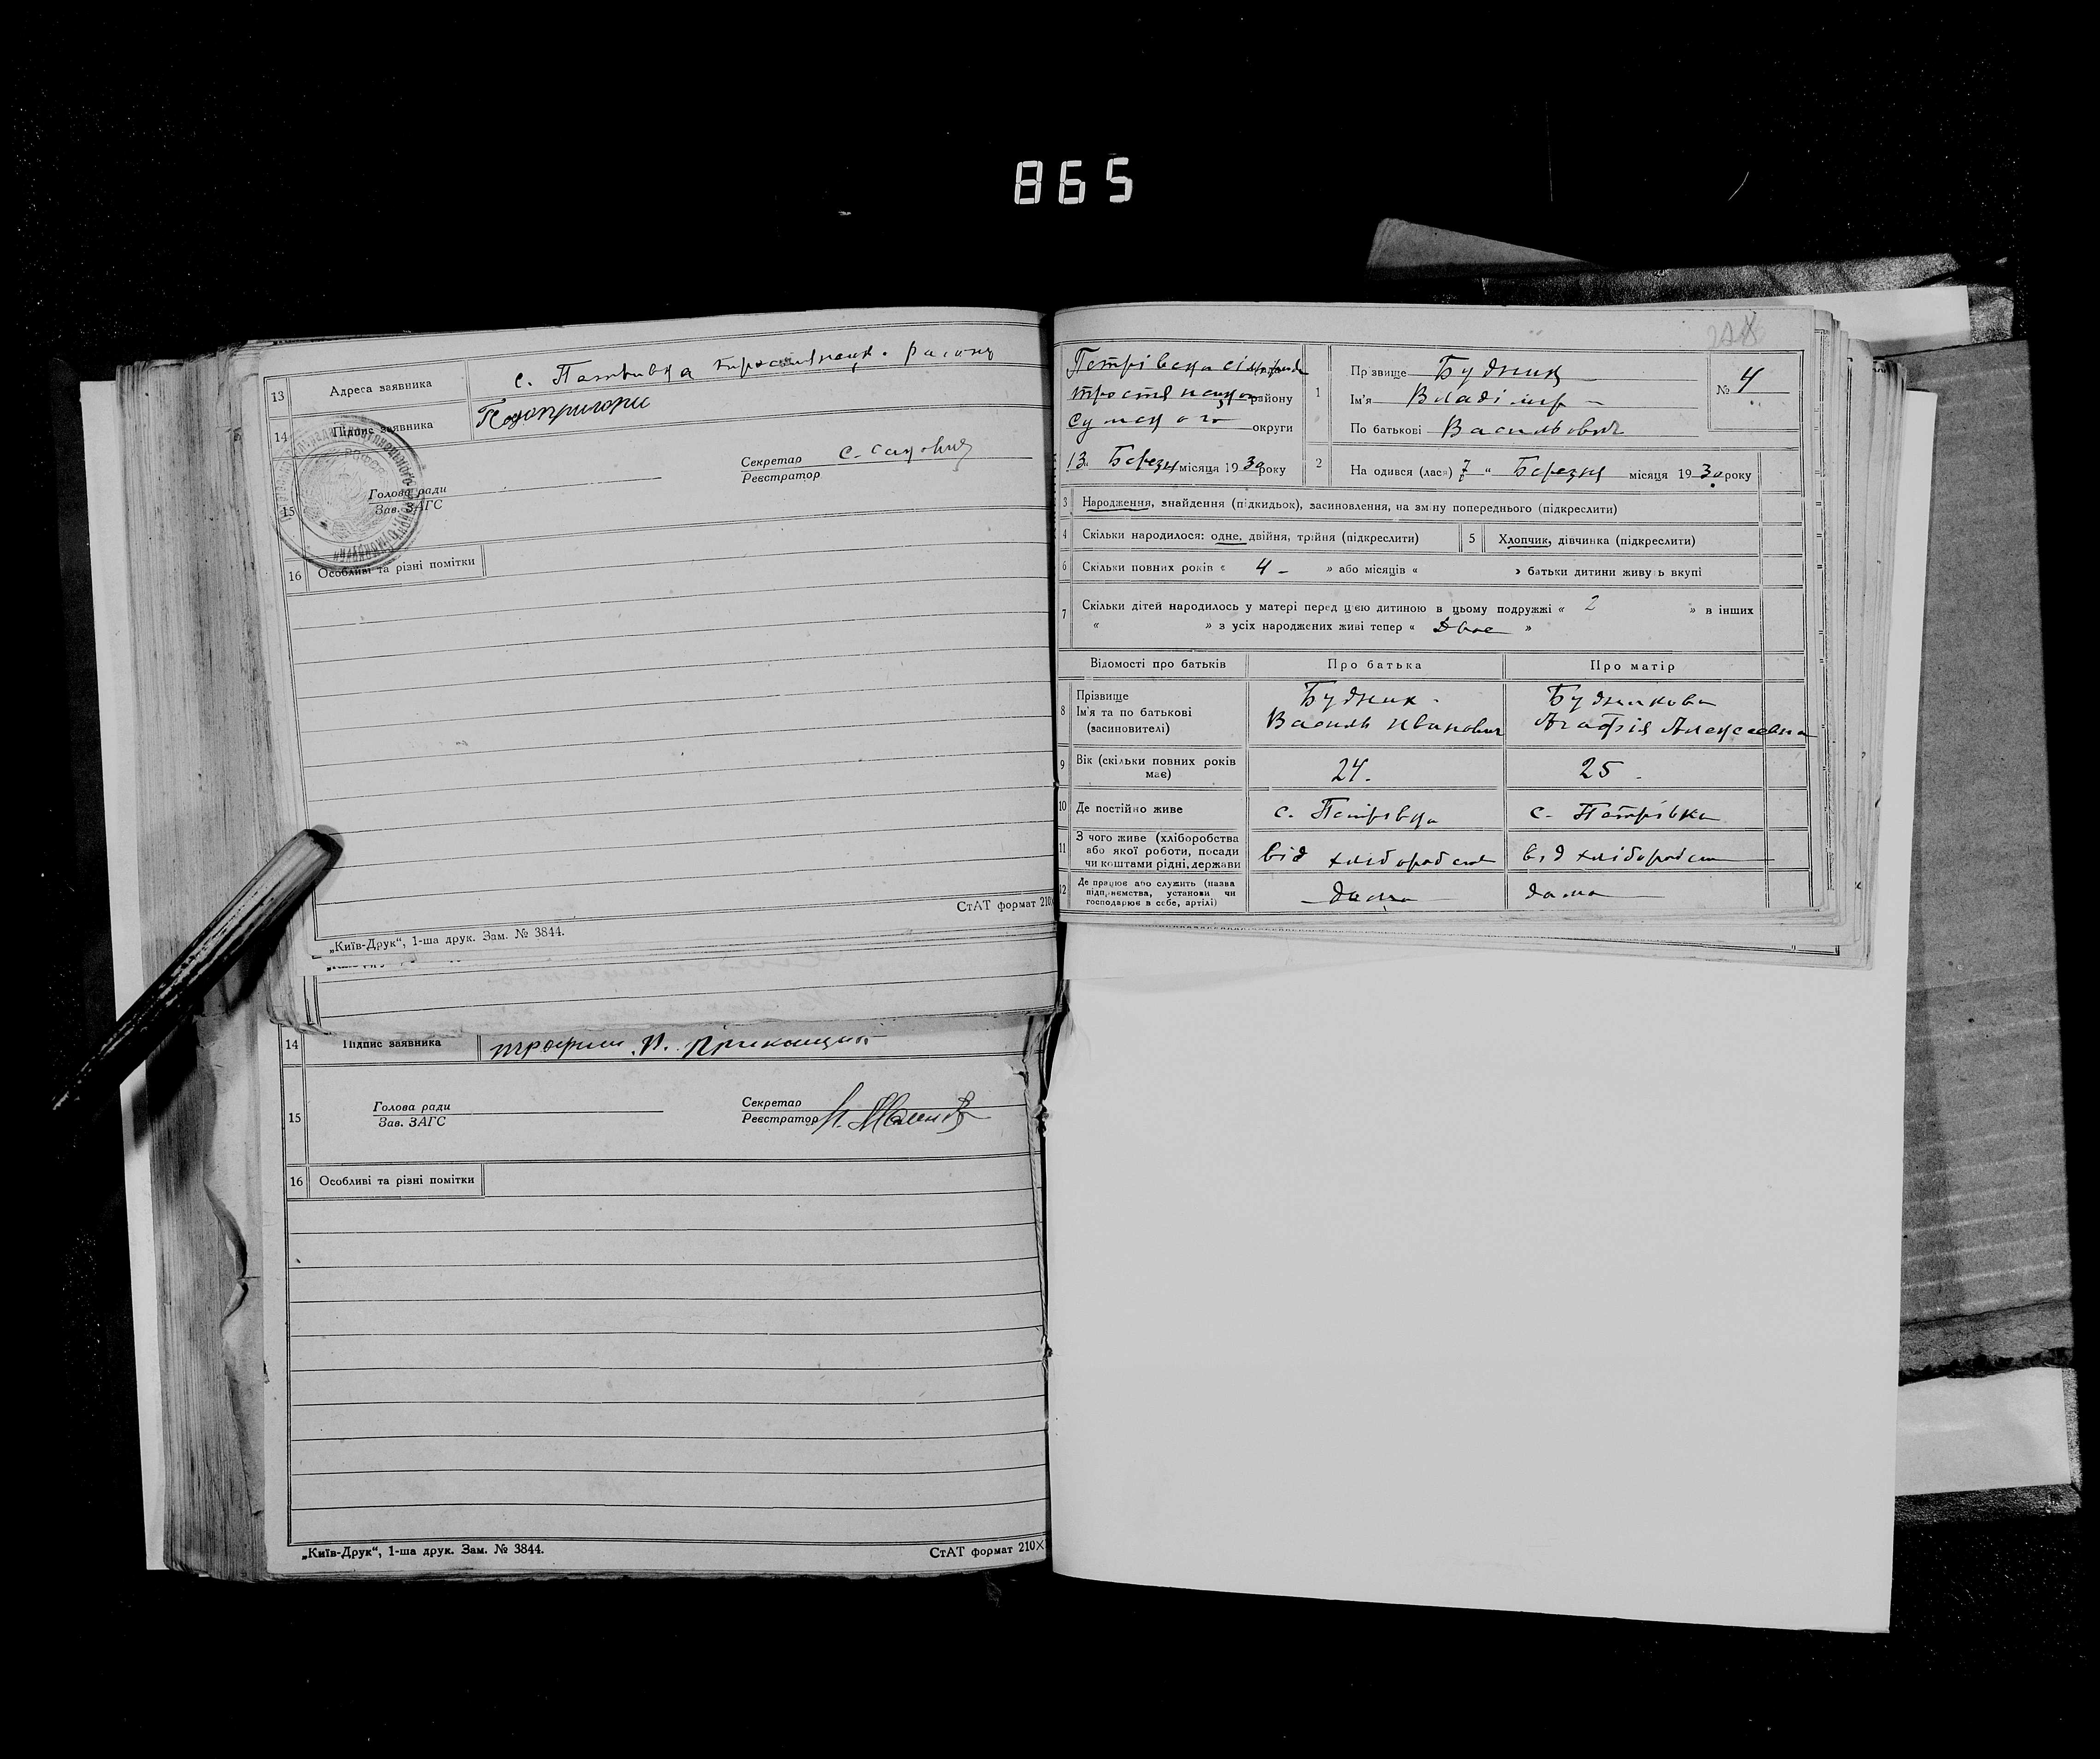 865
13 Адреса заявника с. Петрівка тростянецк. району
14 Підпис заявника
Секретар
Реєстратор
15 Голова ради
Зав. ЗАГС
16 Особливі та різні помітки
СтАТ формат 210
„Київ-Друк“, 1-ша друк. Зам. № 3844.
14 Підпис заявника
15 Голова ради
Зав. ЗАГС
Секретар
Реєстратор
16 Особливі та різні помітки
„Київ-Друк“, 1-ша друк. Зам. № 3844.
СтАТ формат 210×
Петрівска
району
Сумского округи
13 Березня місяця 1930 року
1 Прізвище Будник
Ім'я Владімир
По батькові Васильович
№ 4
2 На одився (лась) 7 " Березня місяця 1930 року
3 Народження, знайдення (підкидьок), засиновлення, на зміну попереднього (підкреслити)
4 Скільки народилося: одне, двійня, трійня (підкреслити)
5 Хлопчик, дівчинка (підкреслити)
6 Скільки повних років « 4 - » або місяців « » батьки дитини живуть вкупі
7 Скільки дітей народилось у матері перед цією дитиною в цьому подружжі « 2 » в інших
« » з усіх народжених живі тепер « Двое »
Відомості про батьків Про батька Про матір
8 Прізвище
Ім'я та по батькові
(засиновителі)
Будник
Василь Иванович
Будникова
Агафія Алексеевна
9 Вік (скільки повних років
має)
24.
25
10 Де постійно живе с. Петрівка с. Петрівка
11 З чого живе (хліборобства
або якої роботи, посади
чи коштами рідні, держави
від хліборобства
від хліборобства
12 Де працює або служить (назва
підприємства, установи чи
господарює в себе, артілі)
дома
дома